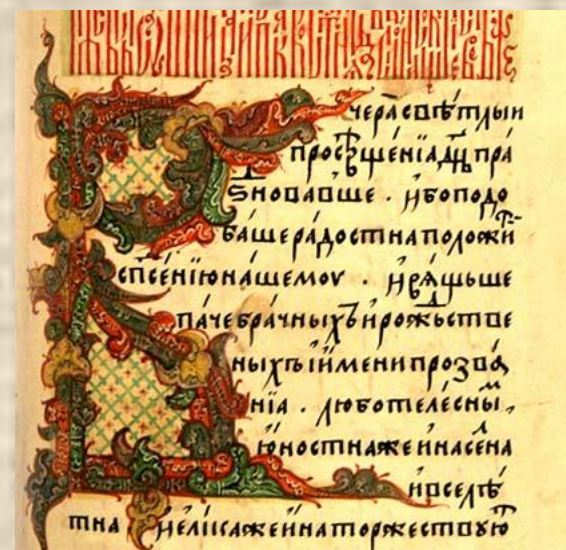 Вчера свѣтлыи
просвѣщенїа дн҃ь пра
ꙁновавше . ибо подо
баше радостна положи
сп҃сенїю нашемоу . и вѧщьше
паче брачныхъ и рожьстве
ныхъ и имени проꙁва
нїа . люботелесны
юностнаже и насена
и вселѣ
тна и еликаже ина торжествую